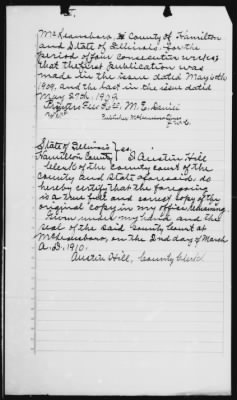 McLeansboro, County of Hamilton
and State of Illinois, for the
period of four consecutive weeks
that the first publication was
made in the issue dated May 6th
1909, and the last in the issue dated
May 27th, 1909.
Printers Fees M. E. Daniel
Publisher McLeansboro
State of Illinois
Hamilton County I Austin Hill
Clerk of the County Court of the
County and State aforesaid, do
hereby certify that the foregoing
is a true full and correct copy of the
original copy in my office remaining.
Given under my hand and the
seal of the said County Court at
McLeansboro, on the 2nd day of March
A.D. 1910.
Austin Hill, County Clerk